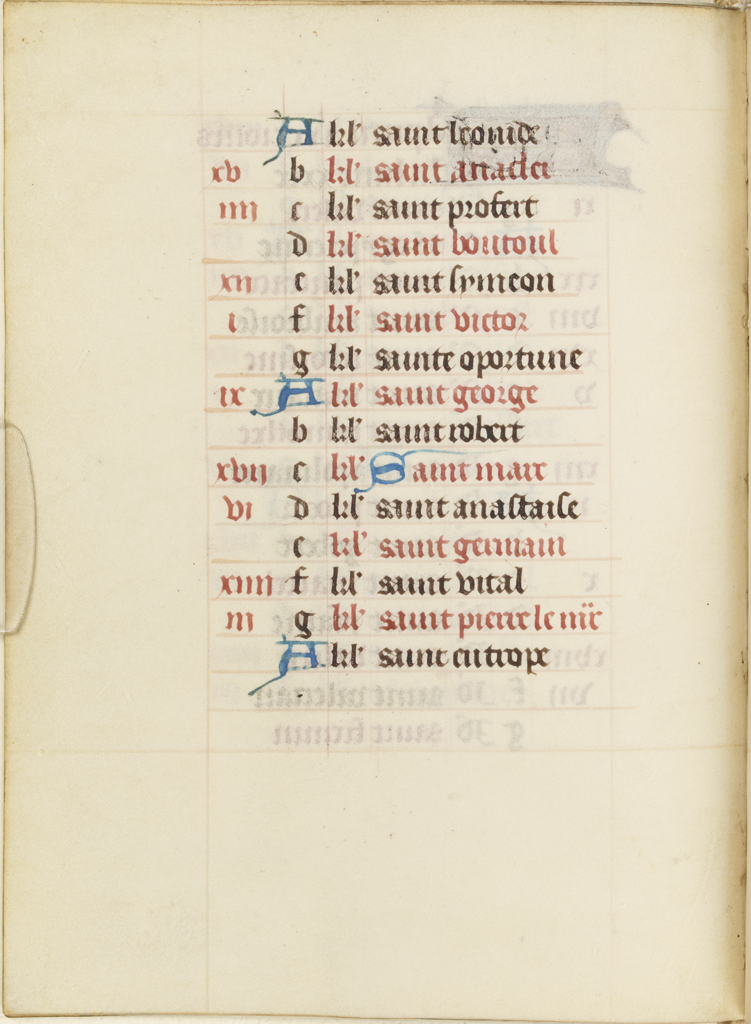 A kl' saint leonide
xv b kl' saint anaclet
iiii c kl' saint profert
d kl' saint boutoul
xii e kl' saint symeon
i f kl' saint victor
g kl' sainte oportune
ix A kl' saint george
b kl' saint robert
xvii c kl' Saint marc
vi d kl' saint anastaise
e kl' saint germain
xiiii f kl' saint vital
iii g kl' saint pierre le mir
A kl' saint eutrope